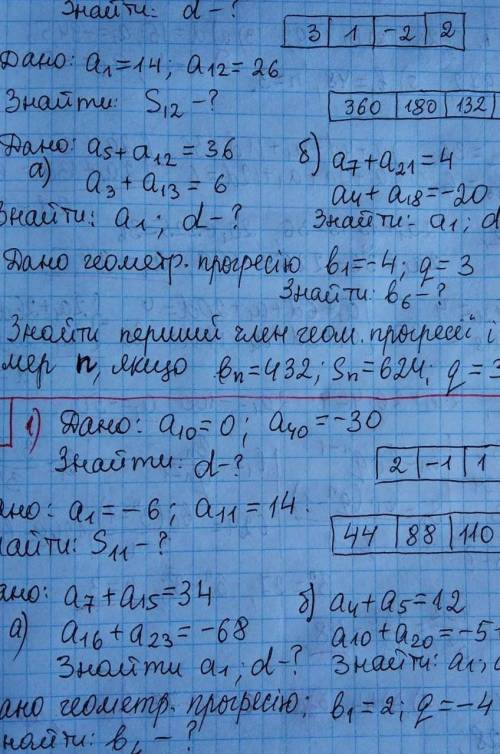 Знайти: d - ?
3 1 -2 2
Дано: a₁=14; a₁₂=26
Знайти: S₁₂ - ?
360 180 132
Дано: a₅+a₁₂=36
а) a₃+a₁₃=6
Знайти: a₁; d - ?
б) a₇+a₂₁=4
a₄+a₁₈=-20
Знайти: a₁; d
Дано геометр. прогресію b₁=-4; q=3
Знайти: b₆ - ?
Знайти перший член геом. прогресії і
мер n, якщо bₙ=432; Sₙ=624; q=3
1) Дано: a₁₀=0; a₄₀=-30
Знайти: d - ?
2 -1 1
ано: a₁=-6; a₁₁=14
найти: S₁₁ - ?
44 88 110
ано: a₇+a₁₅=34
а) a₁₆+a₂₃=-68
Знайти a₁; d - ?
б) a₄+a₅=12
a₁₀+a₂₀=-5
Знайти: a₁,
ано геометр. прогресію: b₁=2; q=-4
найти: b - ?